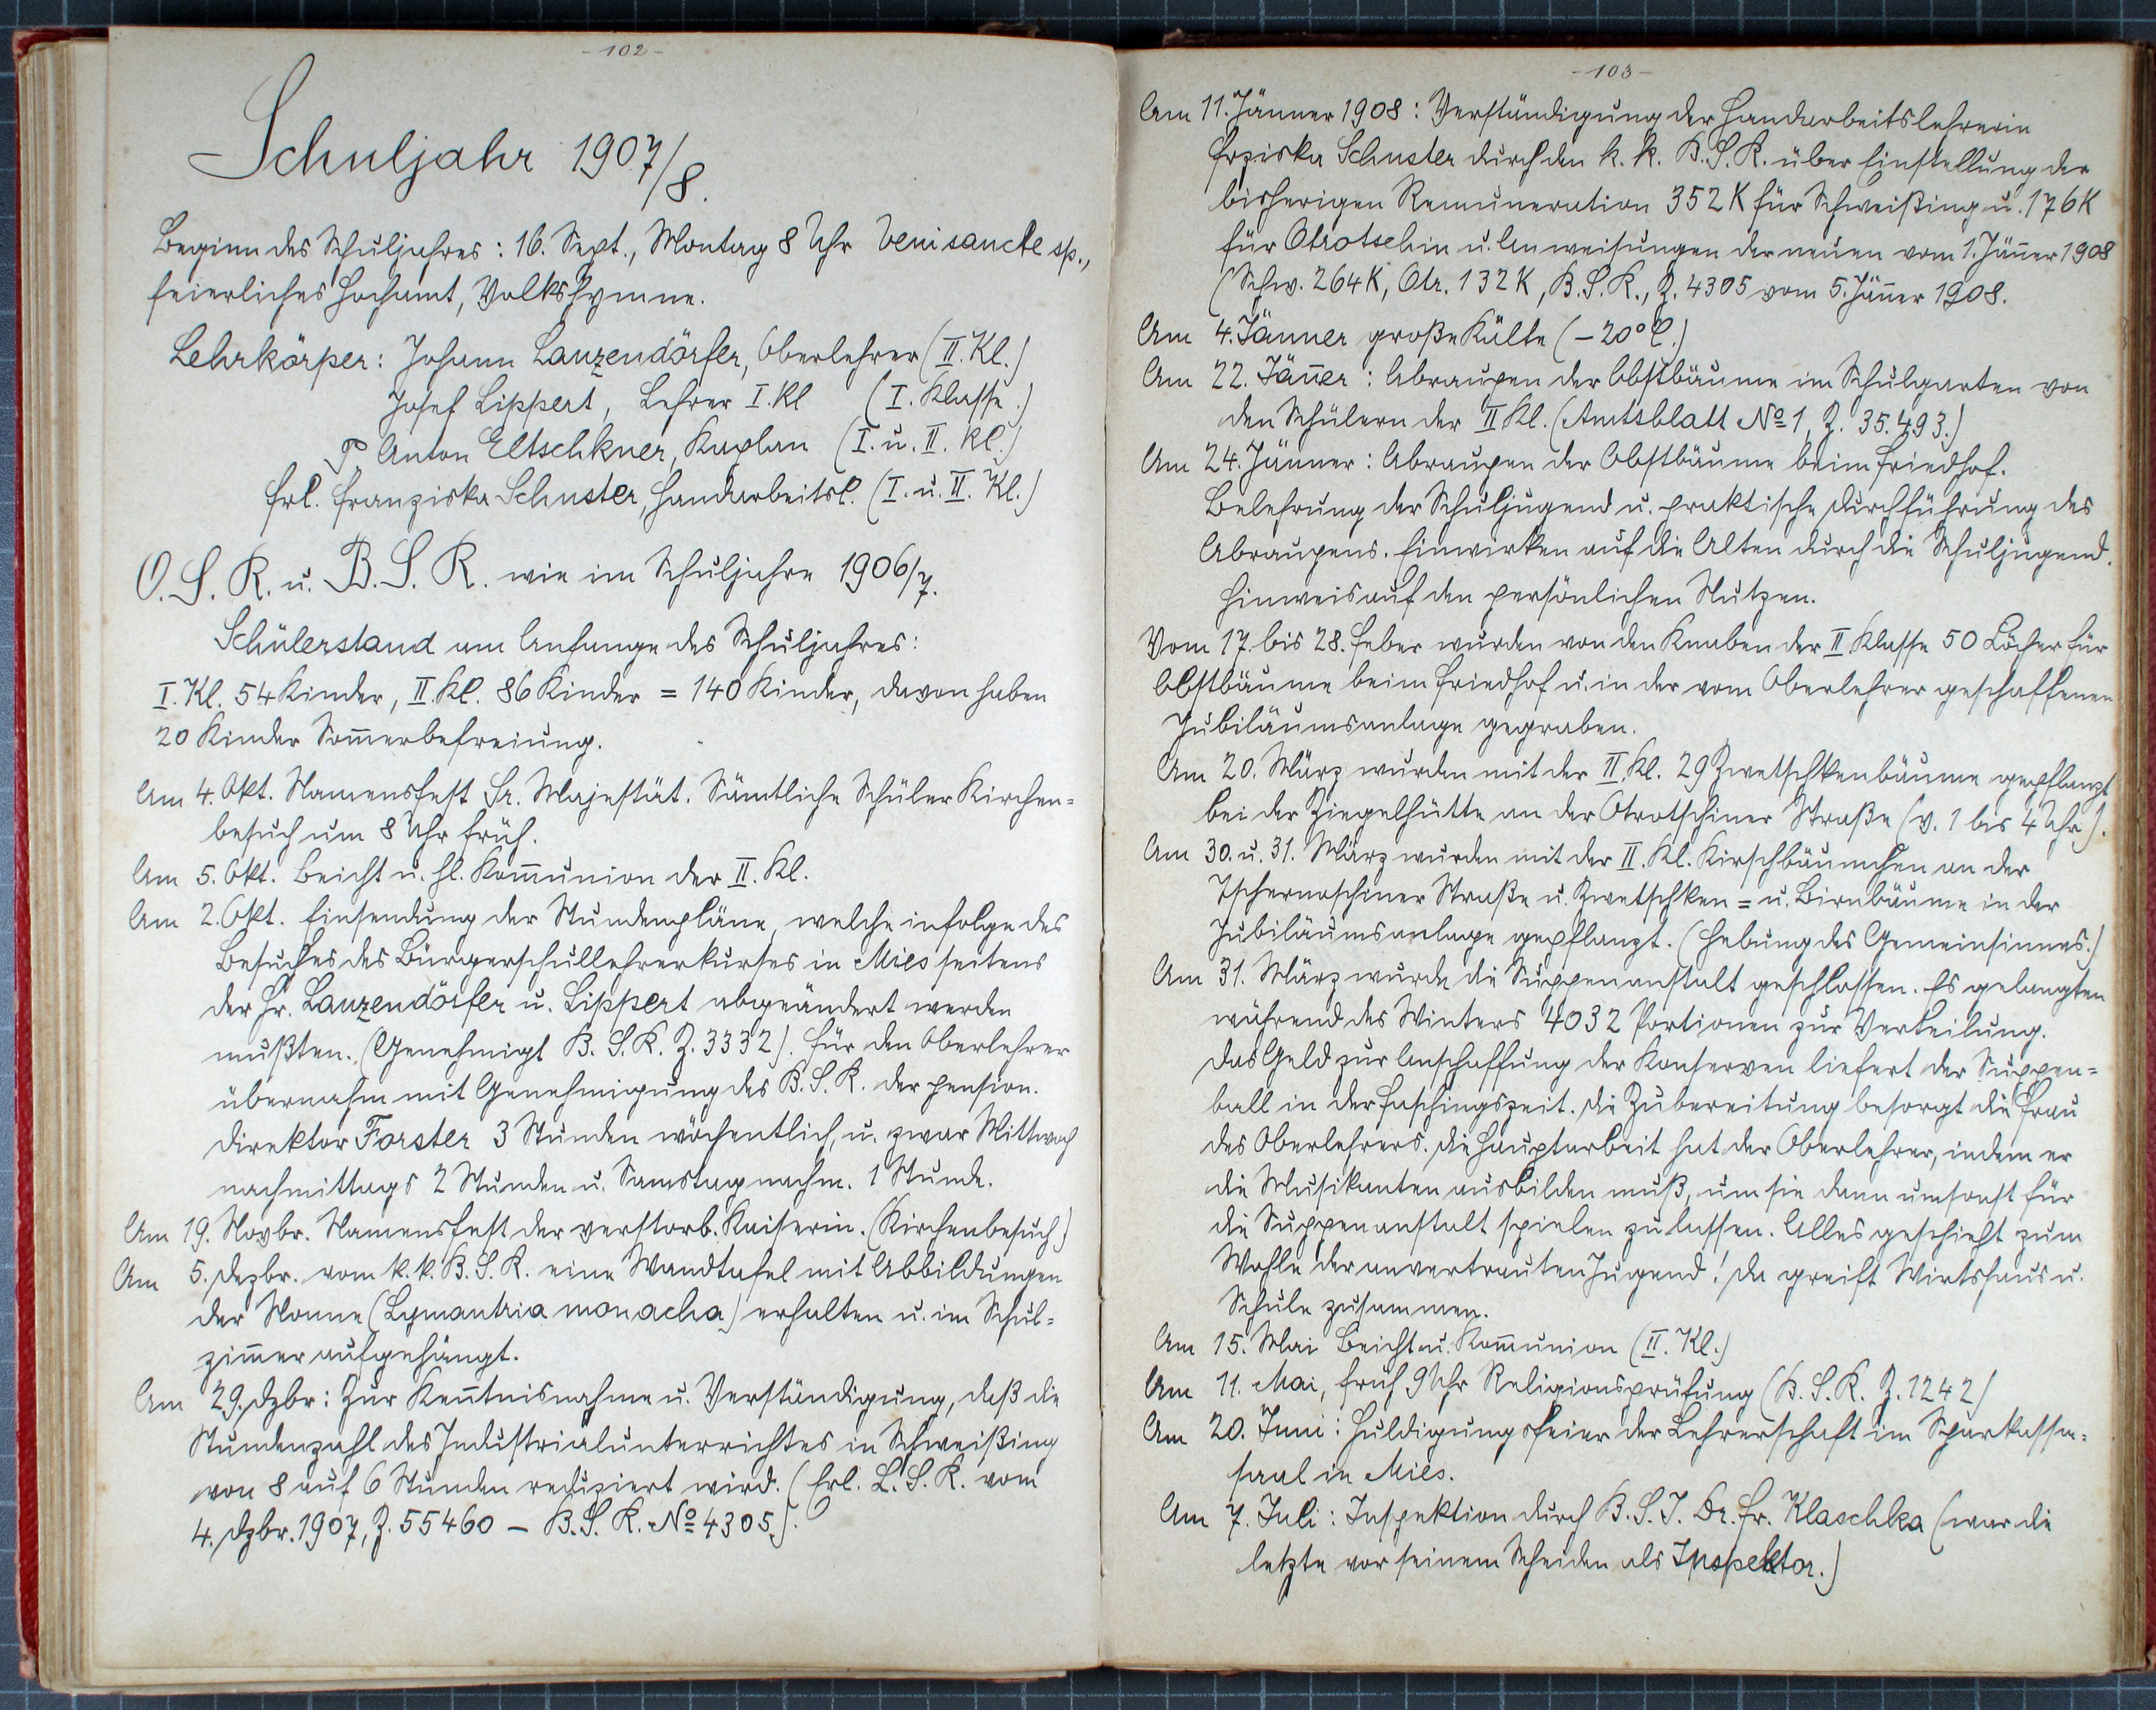 - 102 -
Schuljahr 1907/8.
Beginn des Schuljahres: 16. Sept., Montag 8 Uhr Veni sancte sp.,
feierliches Hochamt, Volkshymne.
Lehrkörper: Johann Lanzendörfer, Oberlehrer (II. Kl.)
Josef Lippert, Lehrer I. Kl (I. Klasse.)
P. Anton Eltschkner, Kaplan (I. u. II. Kl.)
Frl. Franziska Schuster, Handarbeitsl. (I. u. II. Kl.)
O. S. R. u. B. S. R. wie im Schuljahre 1906/7.
Schülerstand am Anfange des Schuljahres:
I. Kl. 54 Kinder, II. Kl. 86 Kinder = 140 Kinder, davon haben
20 Kinder Som̄erbefreiung.
Am 4. Okt. Namensfest Sr. Majestät. Sämtliche Schüler Kirchen=
besuch um 8 Uhr früh.
Am 5. Okt. Beicht u. hl. Kom̄union der II. Kl.
Am 2. Okt. Einsendung der Stundenpläne, welche infolge des
Besuches des Bürgerschullehrerkurses in Mies seitens
der Hr. Lanzendörfer u. Lippert abgeändert werden
mußten. (Genehmigt B. S. R. Z. 3332). Für den Oberlehrer
übernahm mit Genehmigung des B. S. R. der pension.
Direktor Forster 3 Stunden wöchentlich, u. zwar Mittwoch
nachmittags 2 Stunden u. Samstag nachm. 1 Stunde.
Am 19. Novbr. Namensfest der verstorb. Kaiserin. (Kirchenbesuch)
Am 5. Dezbr. vom k. k. B. S. R. eine Wandtafel mit Abbildungen
der Nonne (Lymantria monacha) erhalten u. im Schul=
zim̄er aufgehängt.
Am 29. Dzbr: Zur Ken̄tnisnahme u. Verständigung, daß die
Stundenzahl des Industrialunterrichtes in Schweißing
von 8 auf 6 Stunden reduziert wird. (Erl. L. S. R. vom
4. Dzbr. 1907, Z. 55460 – B. S. R. No 4305).
- 103 -
Am 11. Jänner 1908: Verständigung der Handarbeitslehrerin
Frziska Schuster durch den k. k. B. S. R. über Einstellung der
bisherigen Remuneration 352 K für Schweißing u. 176 K
für Otrotschin u. Anweisungen der neuen vom 1. Jän̄er 1908
(Schw. 264 K, Otr. 132 K, B. S. R., Z. 4305 vom 5. Jän̄er 1908.
Am 4. Jänner große Kälte (– 20° C.)
Am 22. Jän̄er: Abraupen der Obstbäume im Schulgarten von
den Schülern der II Kl. (Amtsblatt No 1, Z. 35.493.)
Am 24. Jänner: Abraupen der Obstbäume beim Friedhof.
Belehrung der Schuljugend u. praktische Durchführung des
Abraupens. Einwirken auf die Alten durch die Schuljugend.
Hinweis auf den persönlichen Nutzen.
Vom 17. bis 28. Feber wurden von den Knaben der II Klasse 50 Löcher für
Obstbäume beim Friedhof u. in der vom Oberlehrer geschaffenen
Jubiläumsanlage gegraben.
Am 20. März wurden mit der II. Kl. 29 Zwetschkenbäume gepflanzt
bei der Ziegelhütte an der Otrotschiner Straße (v. 1 bis 4 Uhr).
Am 30. u. 31. März wurden mit der II. Kl. Kirschbäumchen an der
Tschernoschiner Straße u. Zwetschken= u. Birnbäume in der
Jubiläumsanlage gepflanzt. (Hebung des Gemeinsinnes.)
Am 31. März wurde die Suppenanstalt geschlossen. Es gelangten
während des Winters 4032 Portionen zur Verteilung.
Das Geld zur Anschaffung der Konserven liefert der Suppen=
ball in der Faschingszeit. Die Zubereitung besorgt die Frau
des Oberlehrers. Die Hauptarbeit hat der Oberlehrer, indem er
die Musikanten ausbilden muß, um sie dann umsonst für
die Suppenanstalt spielen zu lassen. Alles geschieht zum
Wohle der anvertrauten Jugend! Da greift Wirtshaus u.
Schule zusammen.
Am 15. Mai Beicht u. Kom̄union (II. Kl.)
Am 11. Mai, früh 9 Uhr Religionsprüfung (B. S. R. Z. 1242)
Am 20. Juni: Huldigungsfeier der Lehrerschaft im Sparkassa=
saal in Mies.
Am 7. Juli: Inspektion durch B. S. I. Dr. Fr. Klaschka (war die
letzte vor seinem Scheiden als Inspektor.)